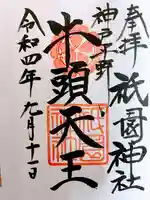 奉拝
祇園神社
神戸平野
牛頭天王
令和四年九月十一日